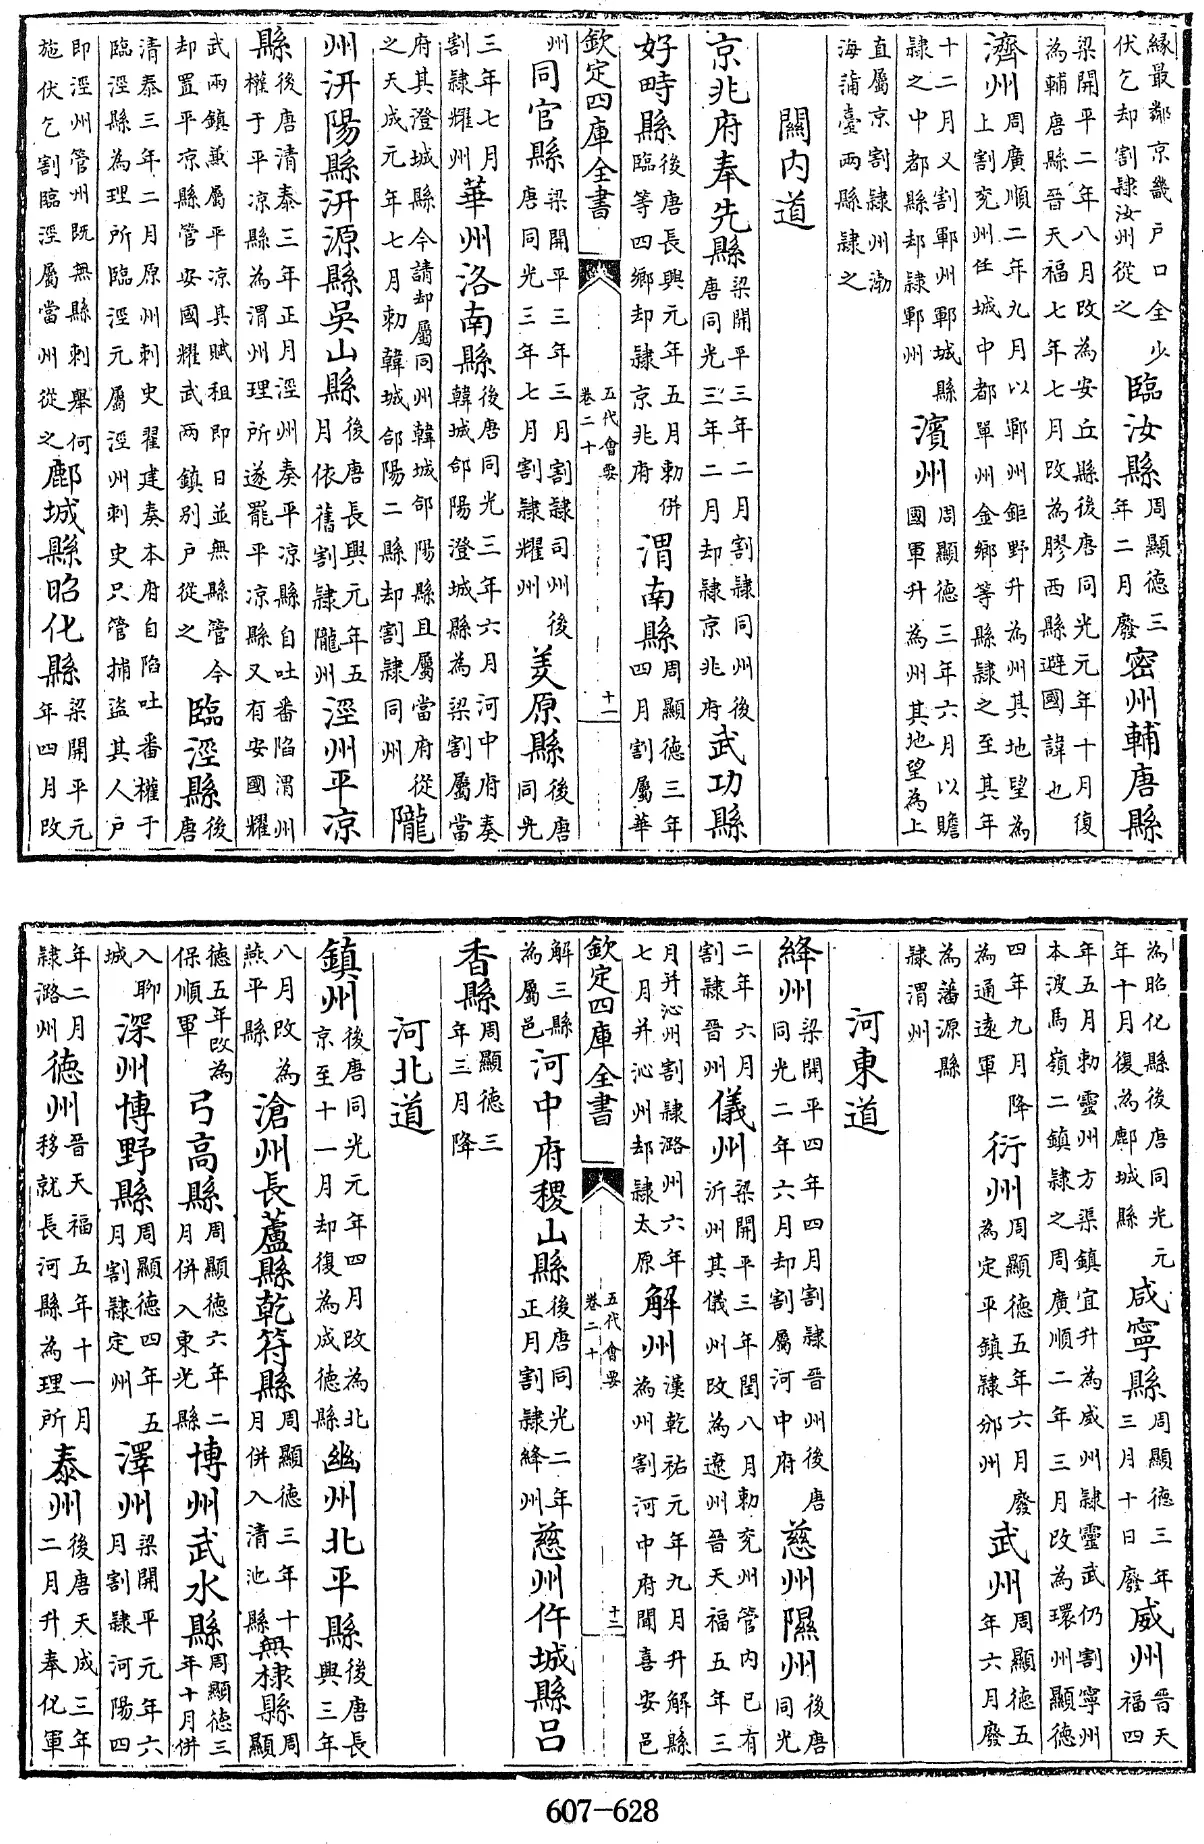 縁最鄰京畿户口全少伏乞却割隷汝州從之臨汝縣周顯德三年二月廢密州輔唐縣
梁開平二年八月改為安丘縣後唐同光元年十月復為輔唐縣晉天福七年七月改為膠西縣避國諱也
濟州周廣順二年九月以鄆州鉅野升為州其地望為上割兖州任城中都單州金鄉等縣隷之至其年
十二月又割鄆州鄆城縣隷之中都縣却隷鄆州濱州周顯德三年六月以贍國軍升為州其地望為上
直屬京割隷州渤海蒲臺兩縣隷之
關内道
京兆府奉先縣梁開平三年二月割隷同州後唐同光三年二月却隷京兆府武功縣
好畤縣後唐長興元年五月勅併臨等四鄉却隷京兆府渭南縣周顯德三年四月割屬華
欽定四庫全書 五代會要卷二十 十一
州同官縣梁開平三年三月割隷司州後唐同光三年七月割隷耀州美原縣後唐同光
三年七月割隷耀州華州洛南縣後唐同光三年六月河中府奏韓城郃陽澄城縣為梁割屬當
府其澄城縣今請却屬同州韓城郃陽縣且屬當府從之天成元年七月勅韓城郃陽二縣却割隷同州隴
州汧陽縣汧源縣吳山縣後唐長興元年五月依舊割隷隴州涇州平凉
縣後唐清泰三年正月涇州奏平凉縣自吐番陷渭州權于平凉縣為渭州理所遂罷平凉縣又有安國耀
武兩鎮兼屬平凉其賦租即日並無縣管今却置平凉縣管安國耀武两鎮别户從之臨涇縣後唐
清泰三年二月原州刺史翟建奏本府自陷吐番權于臨涇縣為理所臨涇元屬涇州刺史只管捕盜其人户
即涇州管州既無縣刺舉何施伏乞割臨涇屬當州從之鄜城縣昭化縣梁開平元年四月改
為昭化縣後唐同光元年十月復為鄜城縣咸寧縣周顯德三年三月十日廢威州晉天福四
年五月勅靈州方渠鎮宜升為威州隷靈武仍割寧州本波馬嶺二鎮隷之周廣順二年三月改為環州顯德
四年九月降為通遠軍衍州周顯德五年六月廢為定平鎮隷邠州武州周顯德五年六月廢
為藩源縣隷渭州
河東道
絳州梁開平四年四月割隷晉州後唐同光二年六月却割屬河中府慈州隰州後唐同光
二年六月割隷晉州儀州梁開平三年閏八月勅兖州管内已有沂州其儀州改為遼州晉天福五年三
月并沁州割隷潞州六年七月并沁州却隷太原解州漢乾祐元年九月升解縣為州割河中府聞喜安邑
解三縣為屬邑河中府稷山縣後唐同光二年正月割隷絳州慈州仵城縣吕
欽定四庫全書 五代會要卷二十 十二
香縣周顯德三年三月降
河北道
鎮州後唐同光元年四月改為北京至十一月却復為成德縣幽州北平縣後唐長興三年
八月改為燕平縣滄州長蘆縣乾符縣周顯德三年十月併入清池縣無棣縣周顯
德五年改為保順軍弓高縣周顯德六年二月併入東光縣博州武水縣周顯德三年十月併
入聊城深州博野縣周顯德四年五月割隷定州澤州梁開平元年六月割隷河陽四
年二月隷潞州德州晉天福五年十一月移就長河縣為理所泰州後唐天成三年二月升奉化軍
607—628